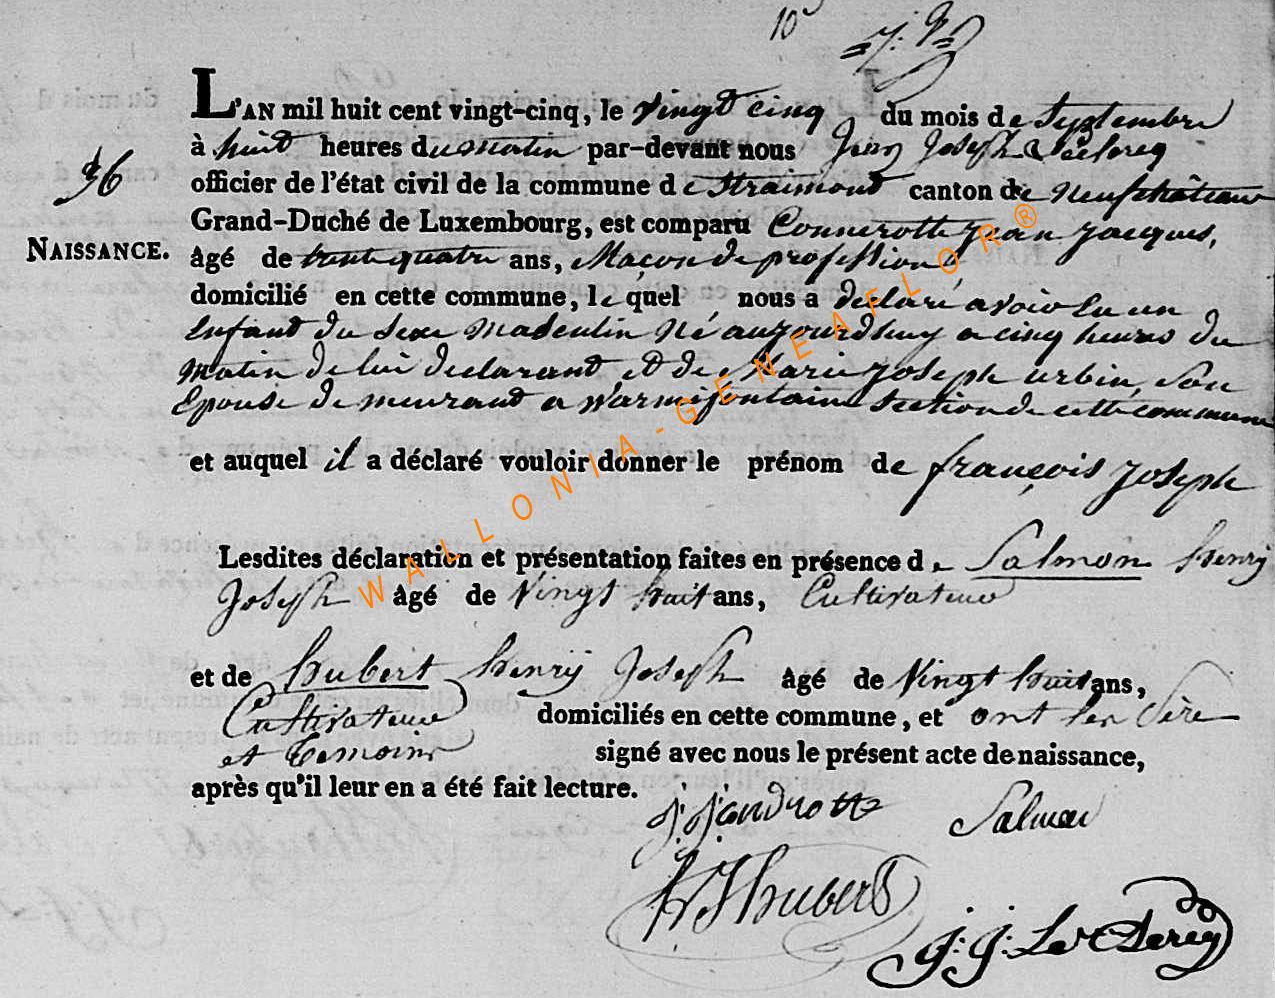 10
L'AN mil huit cent vingt-cinq, le vingt cinq du mois de Septembre
à huit heures du matin par-devant nous Jean Joseph Leclercq
officier de l'état civil de la commune de Straimont canton de neufchâteau
Grand-Duché de Luxembourg, est comparu Connerotte jean jacques,
36
NAISSANCE.
âgé de trente quatre ans, Maçon de profession
domicilié en cette commune, lequel nous a declaré avoir eu un
Enfant du Sexe Masculin Né aujourdhuy a cinq heures du
matin de lui declarant et de Marie joseph urbin, Son
Epouse demeurant a Warmifontaine section de cette commune
et auquel il a déclaré vouloir donner le prénom de françois joseph
Lesdites déclaration et présentation faites en présence de Salmon henry
Joseph âgé de Vingt huit ans, Cultivateur
et de hubert henry Joseph âgé de Vingt huit ans,
Cultivateur domiciliés en cette commune, et ont les
et temoins signé avec nous le présent acte de naissance,
après qu'il leur en a été fait lecture.
Salmon
H J hubert
J: J: Le Clercq
WALLONIA-GENEAFLOR®